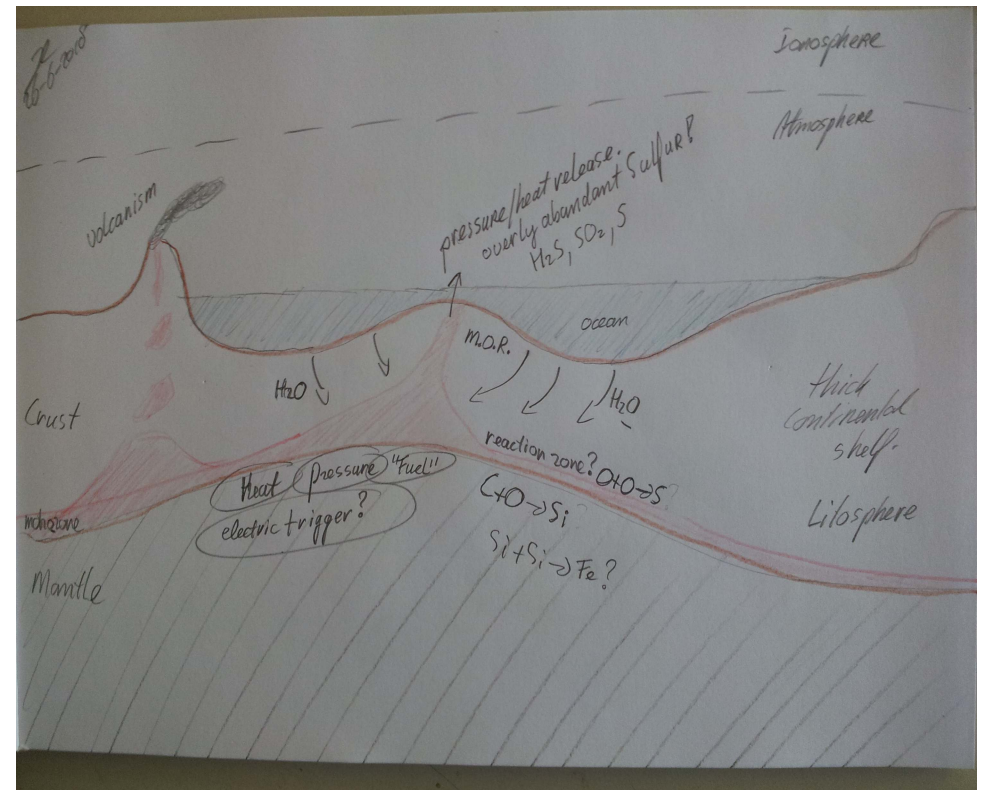 26-6-2018
Ionosphere
Atmosphere
volcanism
pressure/heat release.
overly abundant Sulfur?
H2S, SO2, S
ocean
M.O.R.
H2O
H2O
Crust
thick
continental
shelf.
reaction zone? O+O→S?
C+O→Si?
Si+Si→Fe?
Heat pressure "Fuel"
electric trigger?
mohozone
Litosphere
Mantle